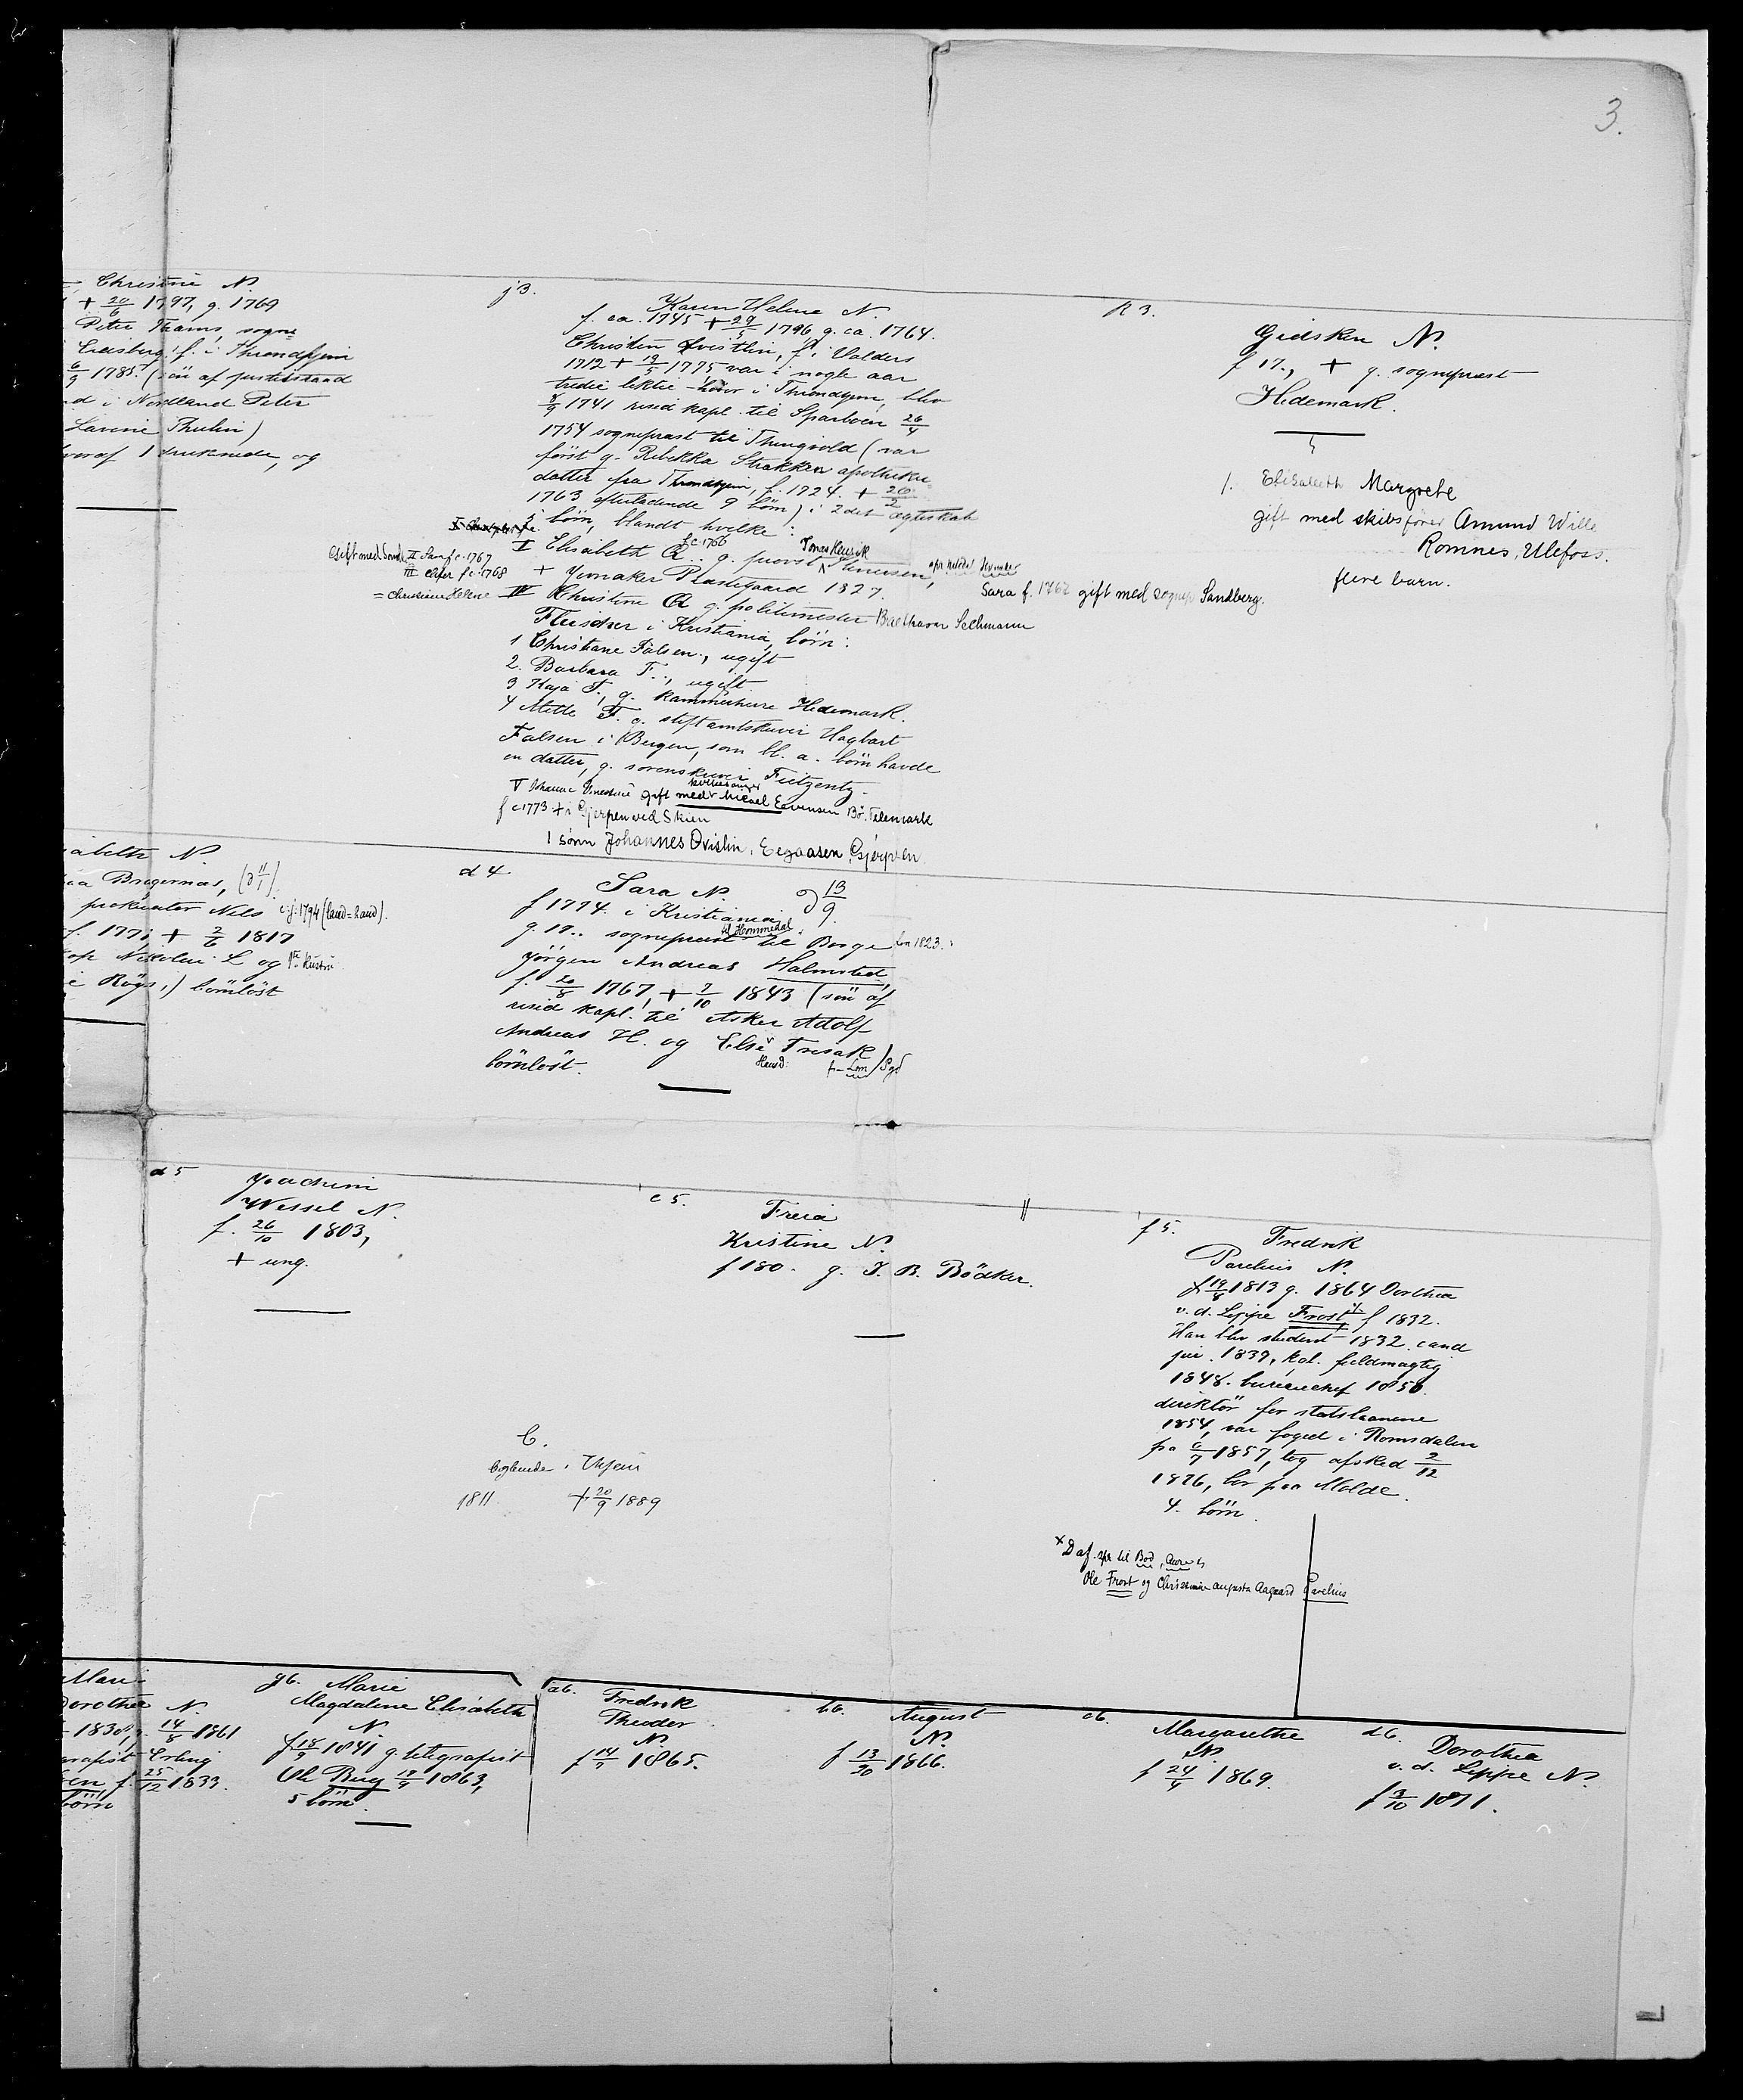 3.
Christine N.
+ 20/6 1797, g. 1769
Peter Thams, sogne
Eidsberg, f. i Throndhjem
6/9 1785. (sön af justitsraad
d i Nordland Peter
Lavine Thulin)
hvoraf 1 druknede, og
j 3.
Karen Helene N.
f. ca. 1745 + 29/5 1796 g. ca. 1764.
Christen Qvistlin, f. i Valders
1712 + 13/5 1775 var i nogle aar
tredie lektie-hører i Throndhjem, blev
8/9 1741 resid kapl. til Sparboen 26/4
1754 sogneprest til Thingvold (var
först g. Rebekka Strakken apotheker
datter fra Throndhjem, f. 1724. + 26/2
1763 efterladende 9 börn) i 2det ægteskab
börn, blandt hvilke:
I Elisabeth Q. f c. 1766 g. provst Jonas Henrik
+ Jevnaker Præstegaard 1827.
gift med Sand. II Sara f c. 1767
III f c. 1768
= Christiane Helene IV Christine Q g. politimester Balthasar Sechmann
Sara f. 1767 gift med sognep Sandberg.
Fleischer i Kristiania, börn:
1 Christiane Falsen., ugift
2. Barbara F., ugift.
3 Kaja F., g. kammerherre Hedemark.
4 Mette F. g. stiftamtskriver Hagbart
Falsen i Bergen, som bl. a. börn havde
en datter, g. sorenskriver Fietzentz.
V Johanne gift med Micael Evensen Bö. Telemark
f c 1773 + i Gjerpen ved Skien
1 sönn Johannes Qvislin, Eegaasen, Gjerpen.
k 3.
Gidsken N.
f 17., + g. sogneprest
Hedemark.
1. Elisabeth Margrete
gift med skibsfører Amund Wille
Romnes, Ulefoss.
flere barn.
abeth N.
paa Bragernæs,
prokurator Nels 1794 (land=Sand).
f. 177; + 2/6 1817
Nikolai L og
i Röge,) börnlöst
d 4.
Sara N.
f 1774. i Kristiania 13/9.
g. 18.. sogneprest til Borge fra 1823.
Hommedal
Jörgen Andreas Halmsted
f. 20/8 1767, + 7/10 1843 (sön af
resid kapl. til Asker Adolf
Andreas H. og Else Trisak)
börnlöst.
d 5
Joachim
Wessel N.
f. 26/10 1803,
+ ung.
e 5.
Freia
Kristine N.
f 180. g. J. B. Bödker.
C.
boghandler i Thjem
1811. + 20/9 1889
f 5.
Fredrik
Parelius N.
f 19/8 1813 g. 1864 Dorthea
v. d. Lippe Frost x f 1832.
Han blev student 1832. cand
jur. 1839, kgl. fuldmægtig
1848. bureauchef 1850.
direktör for statslaanene
1854, var foged i Romsdalen
fra 6/7 1857, tog afsked 2/12
1876, bor paa Molde.
4. börn.
x D af. spr til Bod, Aure
Ole Frost og Christiania Augusta Aagaard Parelius
Marie
Dorothea N.
1838, g. 14/8 1861
telegrafist Erling
f. 25/12 1833.
börn
g6. Marie
Magdalene Elisabeth
N.
f 18/9 1841 g. telegrafist
Ole Berg 19/9 1863,
5 börn.
a6.
Fredrik
Theodor
N.
f 14/7 1865.
b6.
August
N.
f 13/20 1866.
c6.
Margarethe
N.
f 24/4 1869.
d6.
Dorothea
v. d. Lippe N.
f 3/10 1871.